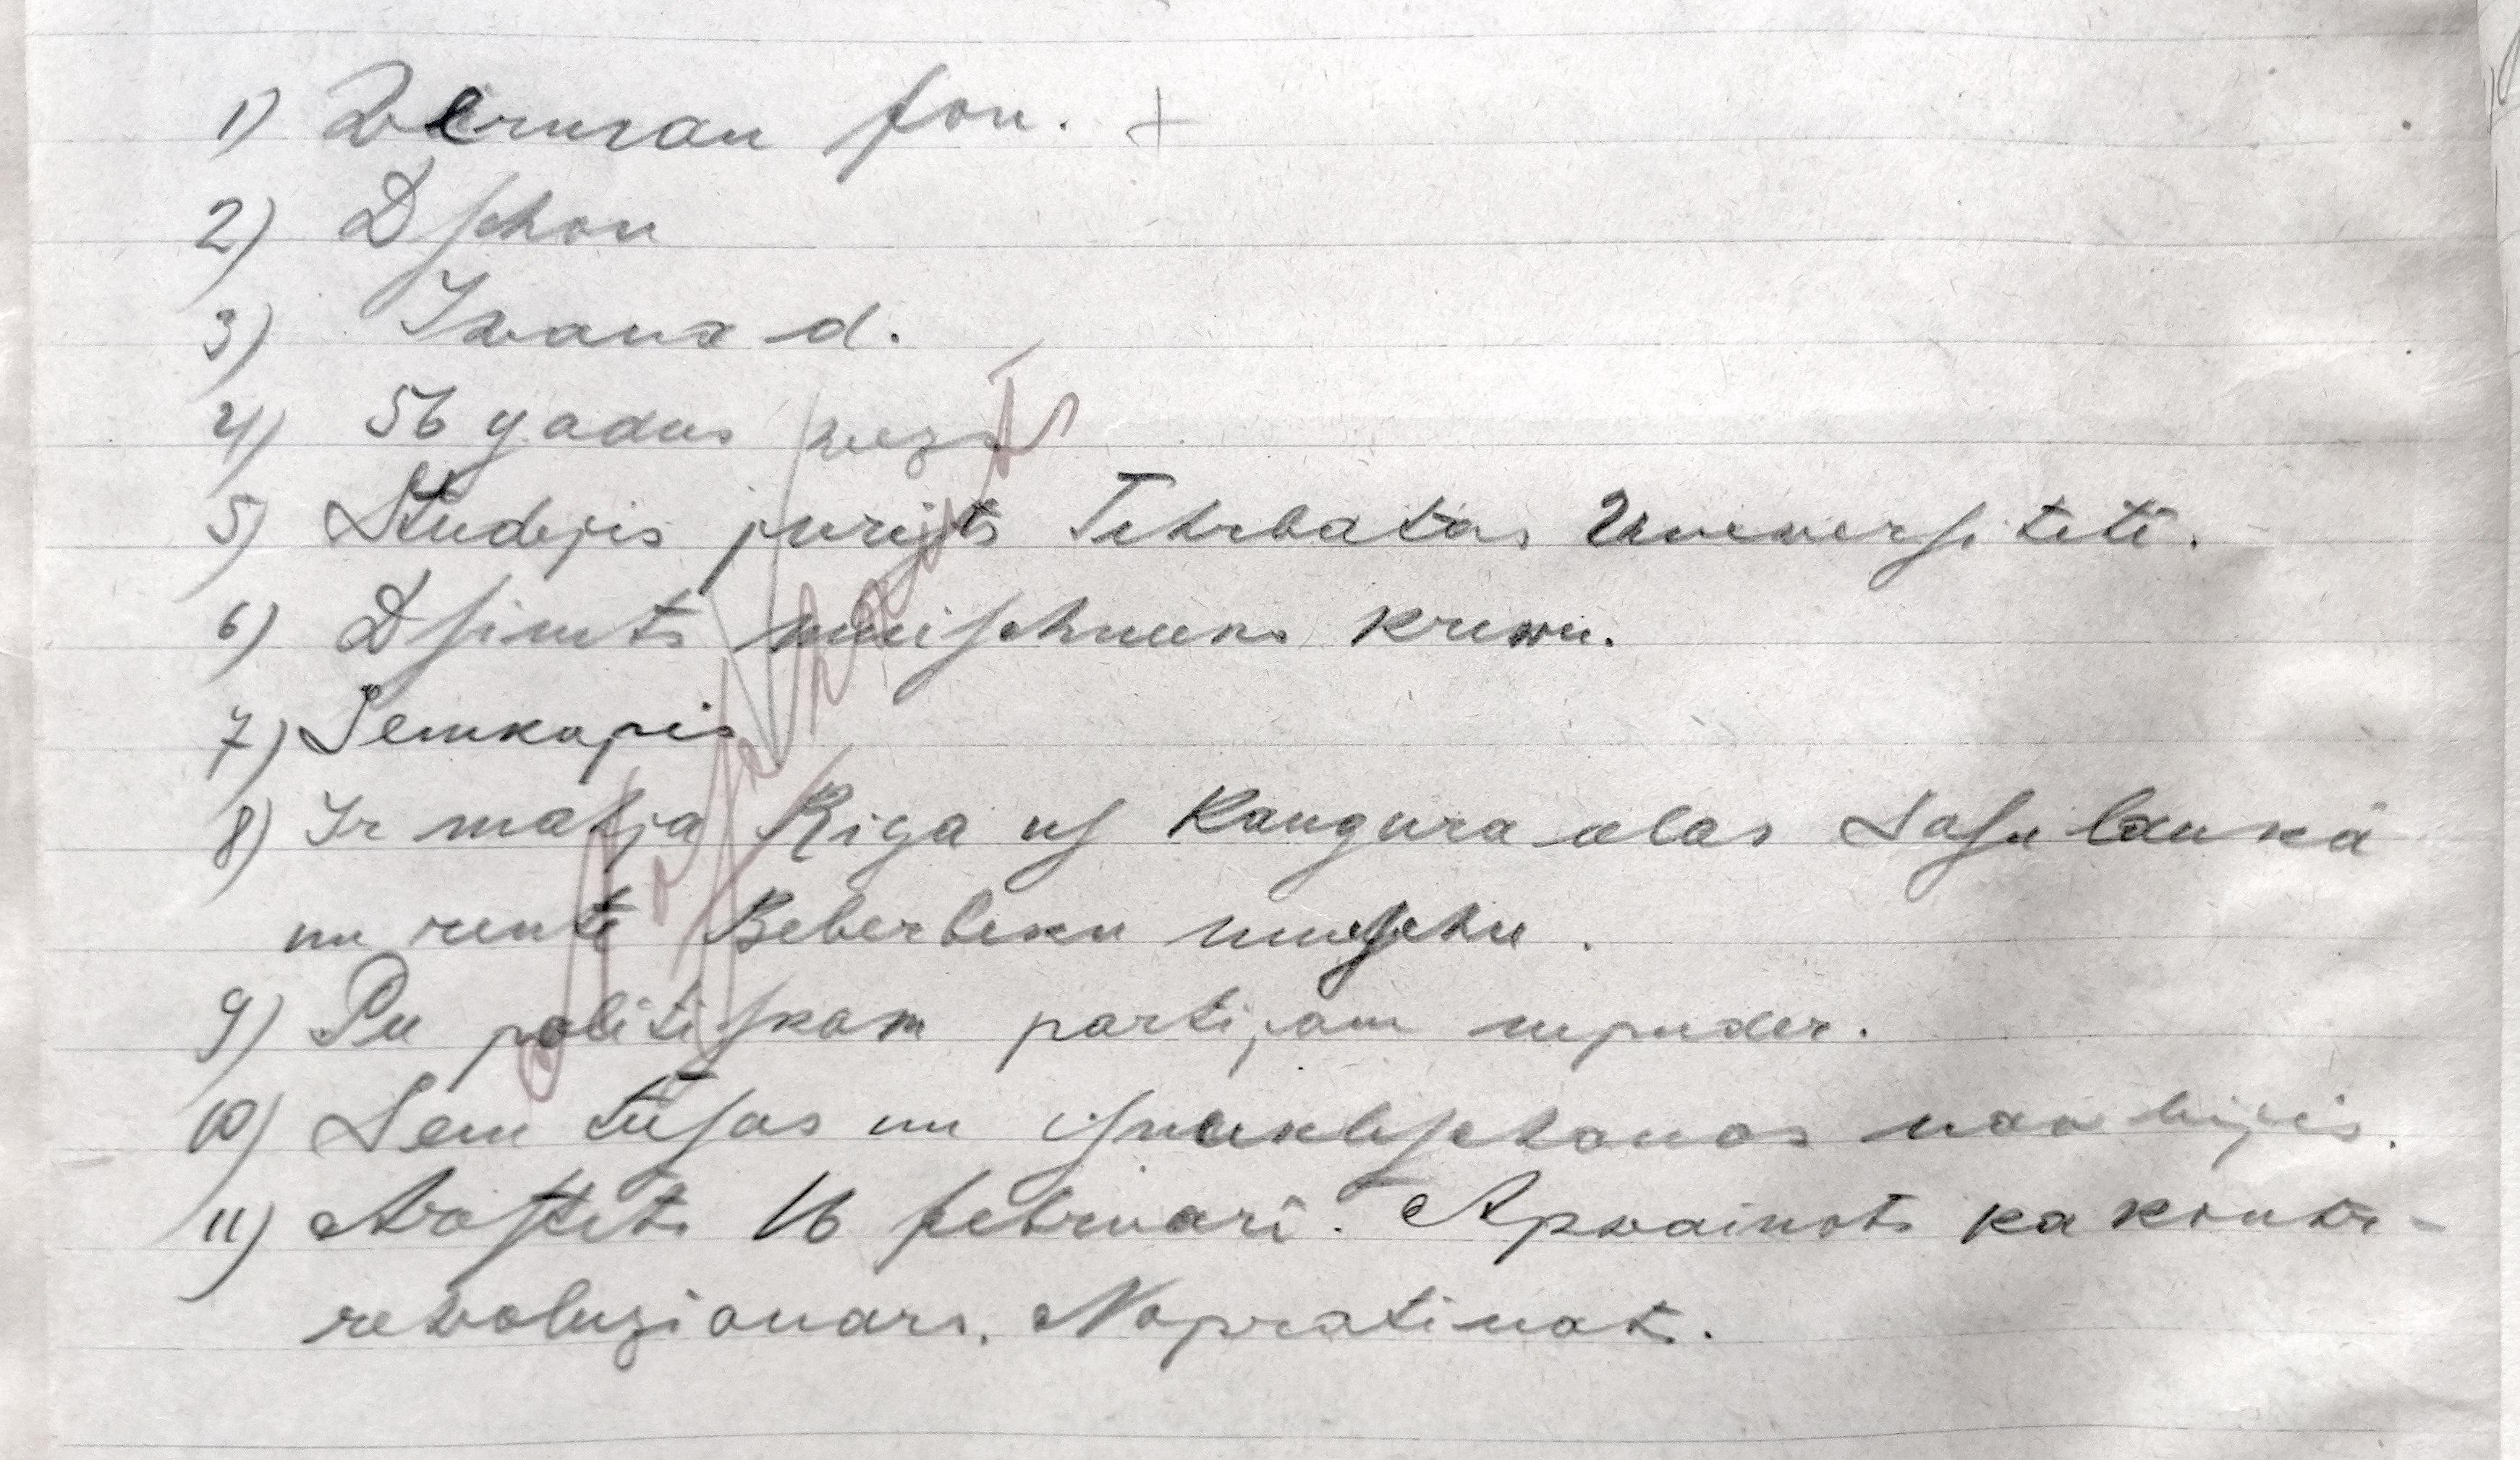 1) Werman fon. +
2) Dschon
3) Iwana d.
4) 56 gadus wezs
5) Studejis jurists Tehrbatas Uniwersitetē.
6) Dsimts muischneeks kreewu.
7) Semkopis
8) Ir mahja Riga us Kangura elas Sasulaukā
un rentē Beberbeku muischu.
9) Pee politiskam partijam nepeeder.
10) Sem teesas un ismekleschanas naw bijis.
11) Arestets 16 februarī. Apwainots ka kontr-
rewoluzionars. Nopratinats.